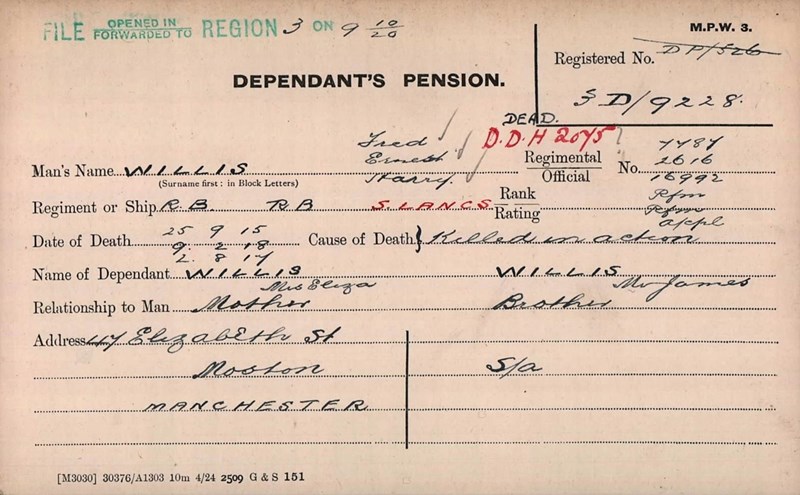 FILE OPENED IN FORWARDED TO REGION 3 ON 9 10/20
M.P.W. 3.
Registered No. DP/526
DEPENDANT'S PENSION.
3D/9228.
DEAD.
D.D.H 2075
Fred
Ernest
Harry.
Man's Name WILLIS
(Surname first: in Block Letters)
Regimental Official No. 7787
2616
16992
Regiment or Ship R.B. R B S. LANCS
Rank Rating Rfm
Rfm
a/cpl
Date of Death 25 9 15
9. 2. 18
2. 8 17
Cause of Death Killed in action
Name of Dependant WILLIS WILLIS
Mrs Eliza Mr James
Relationship to Man Mother Brother
Address 47 Elizabeth St
Moston S/a
MANCHESTER
[M3030] 30376/A1303 10m 4/24 2509 G & S 151